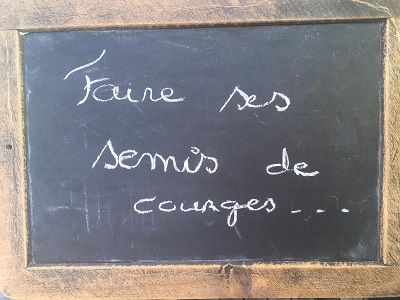 Faire ses
semis de
courges...